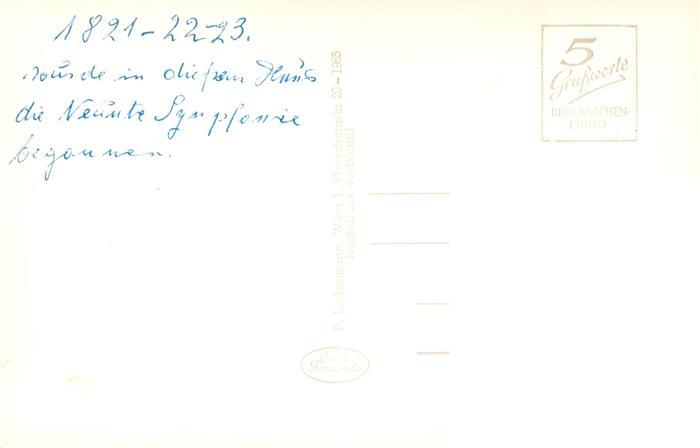 1821-22-23.
wurde in diesem Haus
die Neunte Symphonie
begonnen.
5
Grußworte
DRUCKSACHEN-
PORTO
P. Ledermann, Wien I., Fleischmarkt 20 - 1965
Nachdruck verboten!
Echte
Fotografie